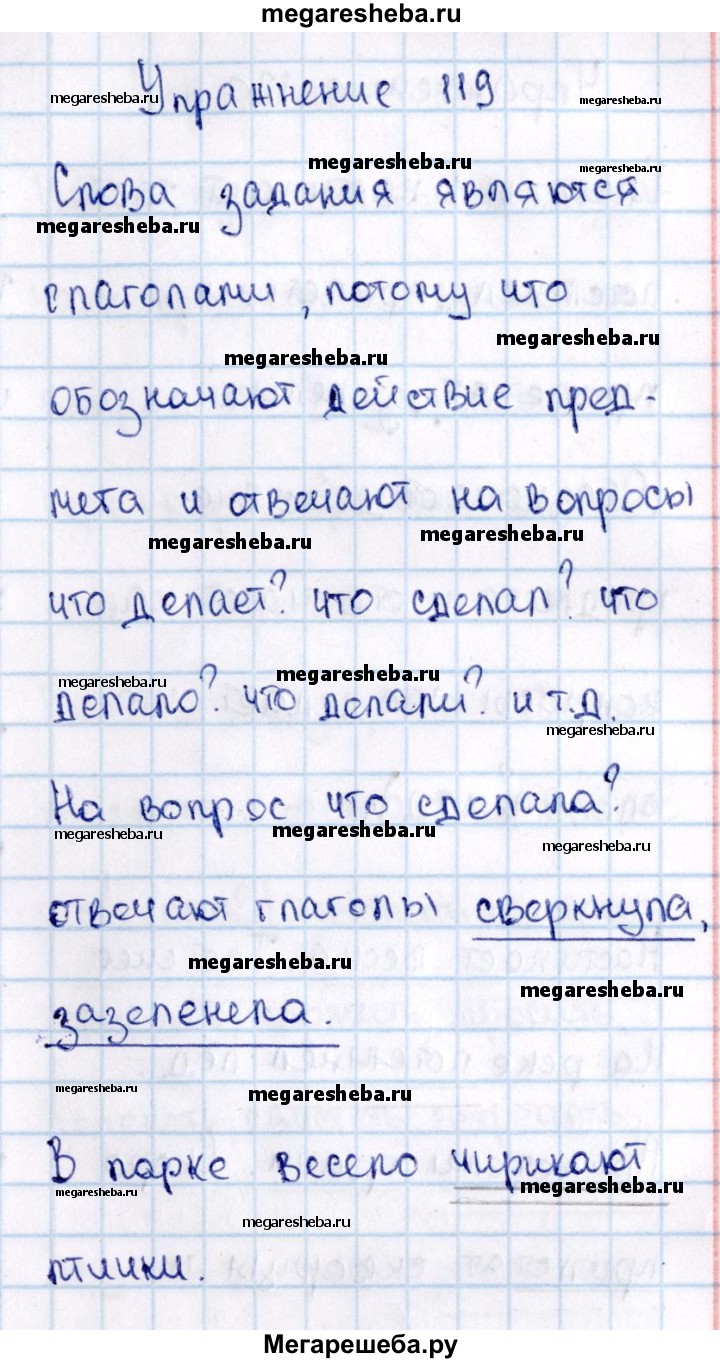 megaresheba.ru
Упражнение 119
megaresheba.ru
megaresheba.ru
megaresheba.ru
Слова задания являются
megaresheba.ru
глаголами, потому что
megaresheba.ru
megaresheba.ru
обозначают действие пред-
мета и отвечают на вопросы
megaresheba.ru
megaresheba.ru
что делает? что сделал? что
megaresheba.ru
megaresheba.ru
megaresheba.ru
делало? что делали? и т.д.
megaresheba.ru
На вопрос что сделала?
megaresheba.ru
megaresheba.ru
megaresheba.ru
отвечают глаголы сверкнула,
megaresheba.ru
megaresheba.ru
зазеленела.
megaresheba.ru
megaresheba.ru
В парке весело чирикают
megaresheba.ru
megaresheba.ru
megaresheba.ru
птички.
Мегарешеба.ру